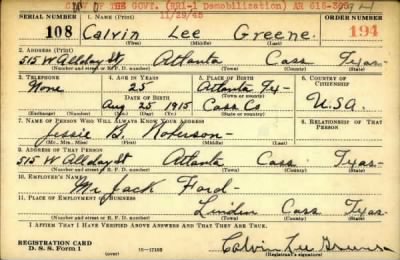 OF THE GOVT. (RR1-1 Demobilization) AR 615-
11/29/45
SERIAL NUMBER 1. NAME (Print) ORDER NUMBER
108 Calvin Lee Greene 194
(First) (Middle) (Last)
2. ADDRESS (Print)
515 W Allday St Atlanta Cass Texas
(Number and street or R. F. D. number) (Town) (County) (State)
3. TELEPHONE 4. AGE IN YEARS 5. PLACE OF BIRTH 6. COUNTRY OF CITIZENSHIP
None 25 Atlanta Tex-
DATE OF BIRTH (Town or county)
Aug 25 1915 Cass Co U.S.A.
(Mo.) (Day) (Yr.) (State or country)
7. NAME OF PERSON WHO WILL ALWAYS KNOW YOUR ADDRESS 8. RELATIONSHIP OF THAT PERSON
Jessie B. Roberson-
(Mr., Mrs., Miss) (First) (Middle) (Last)
9. ADDRESS OF THAT PERSON
515 W Allday St Atlanta Cass Texas-
(Number and street or R. F. D. number) (Town) (County) (State)
10. EMPLOYER'S NAME
Mr Jack Ford-
11. PLACE OF EMPLOYMENT OR BUSINESS
Linden Cass Texas
(Number and street or R. F. D. number) (Town) (County) (State)
I AFFIRM THAT I HAVE VERIFIED ABOVE ANSWERS AND THAT THEY ARE TRUE.
REGISTRATION CARD
D. S. S. Form 1 (over) Calvin Lee Greene
(Registrant's signature)